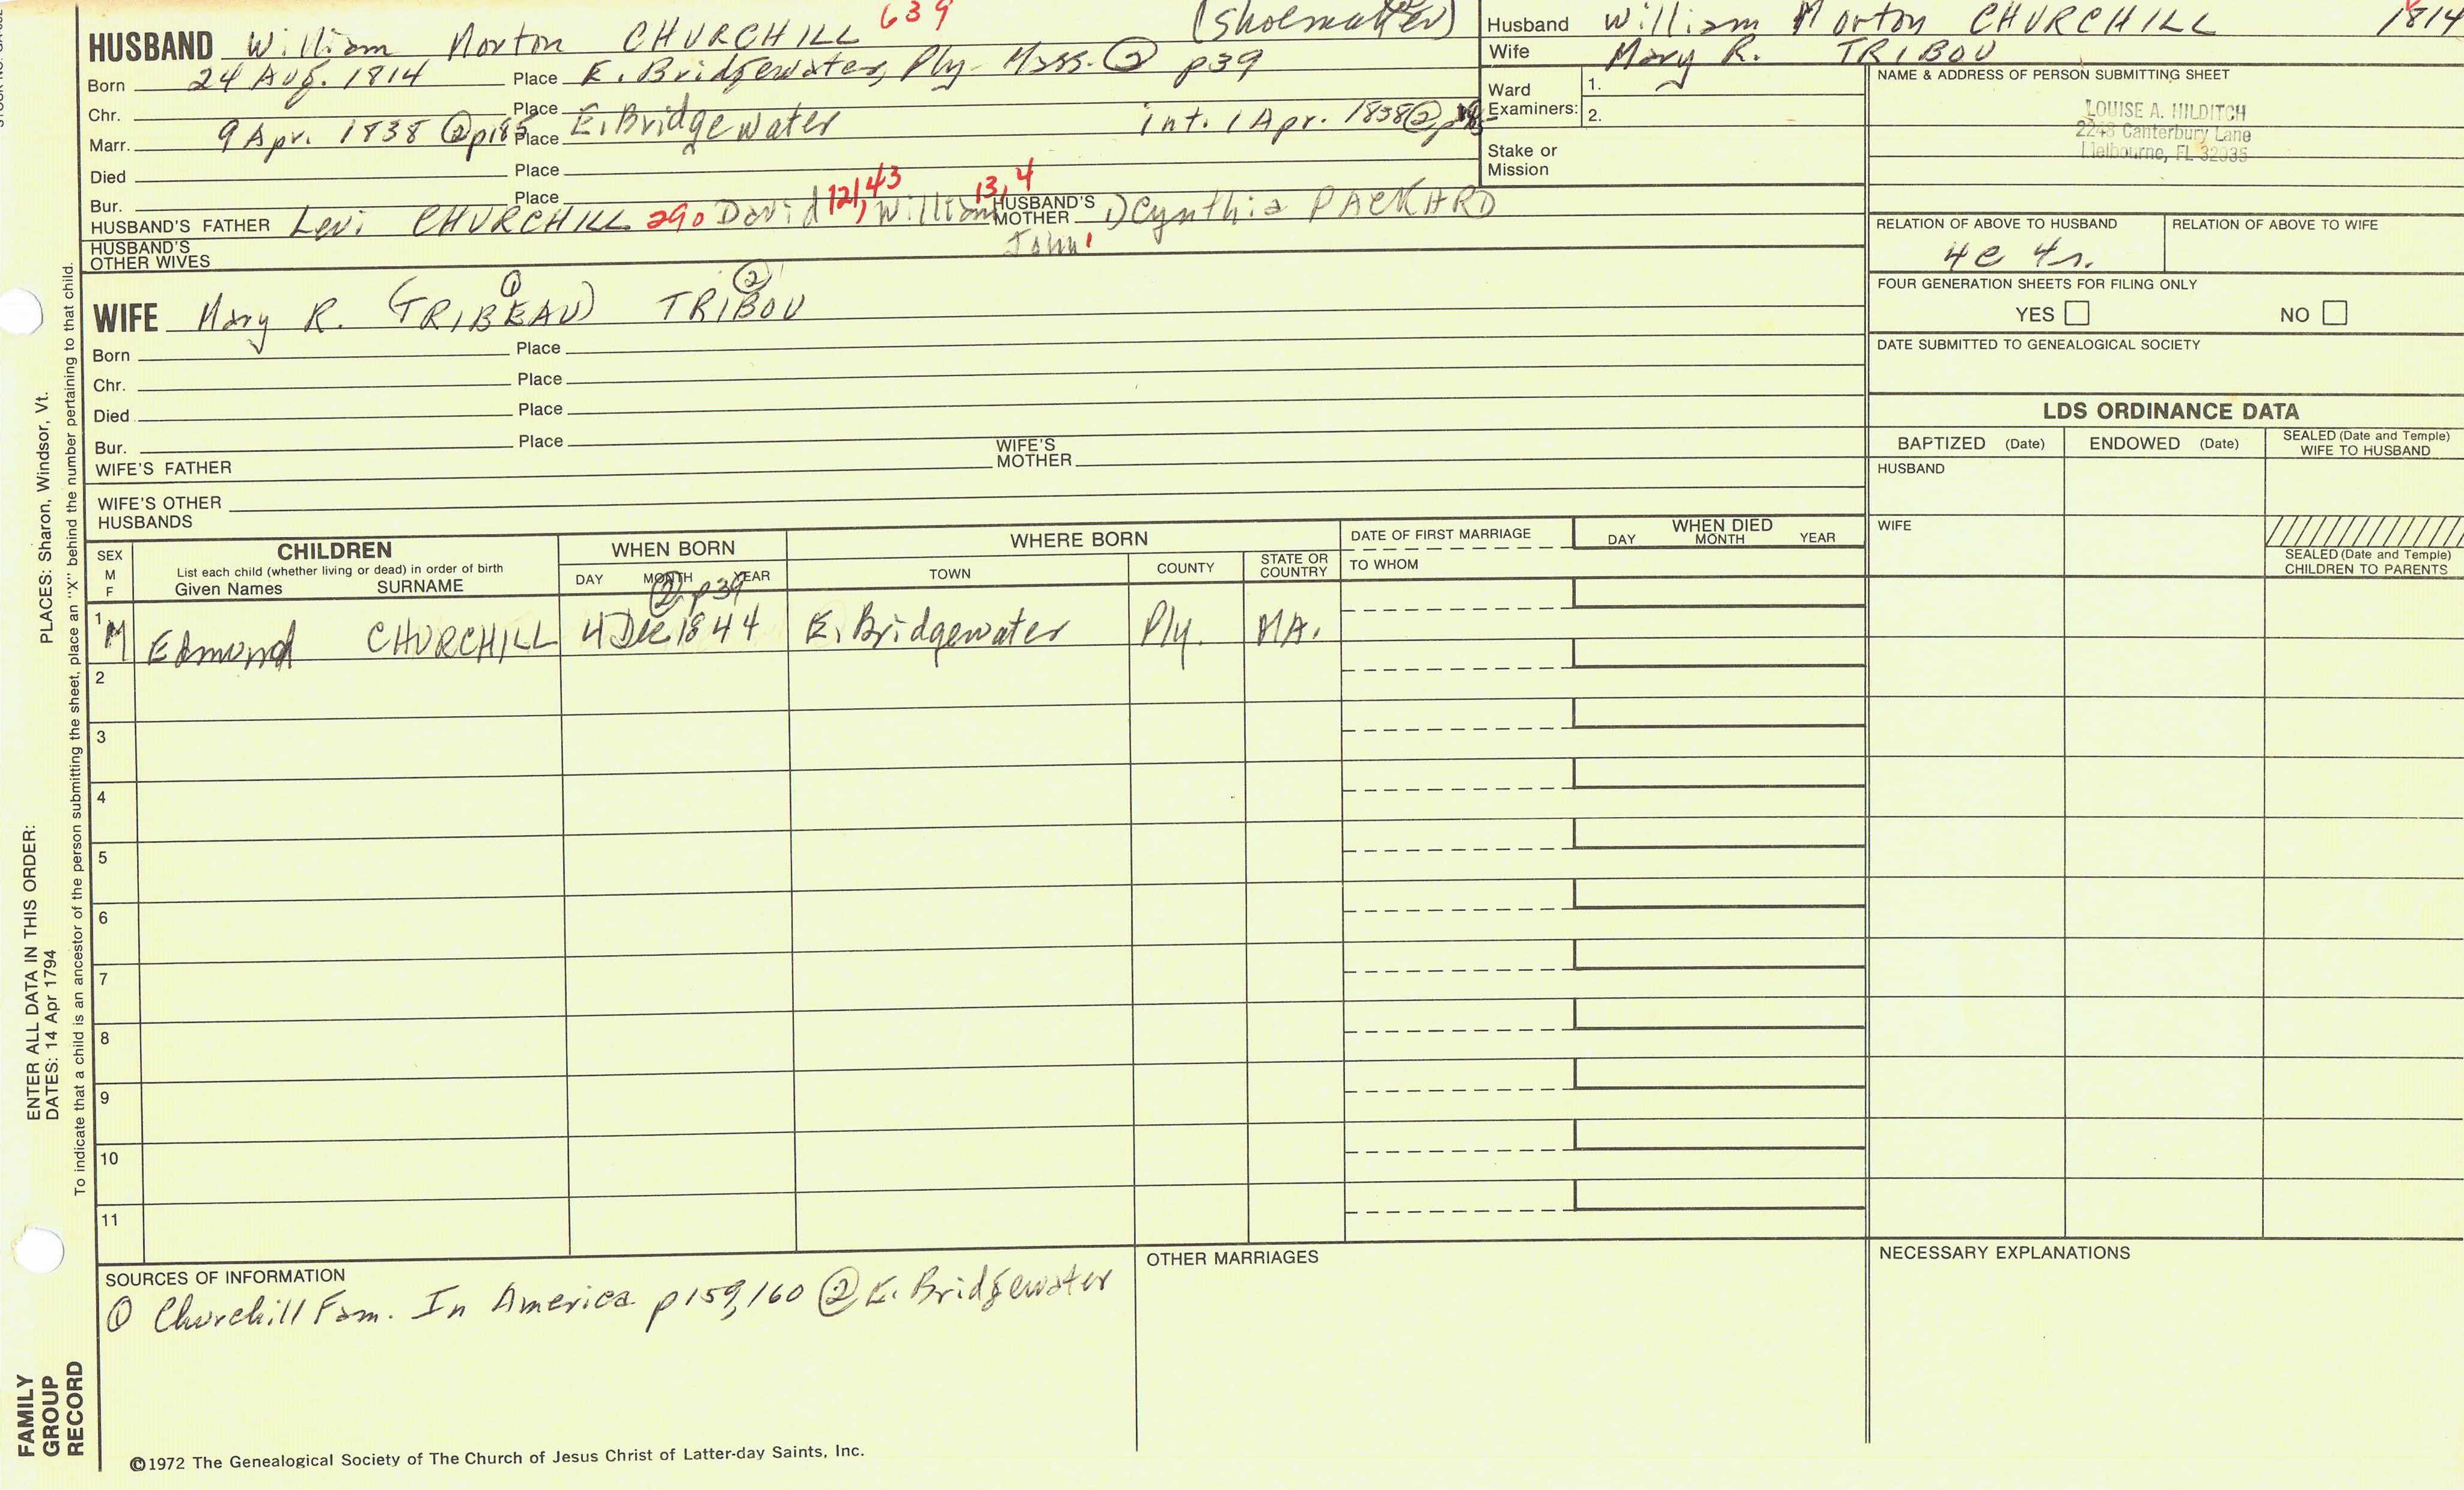 HUSBAND William Morton CHURCHILL 639 (Shoemaker)
Born 24 Aug. 1814 Place E. Bridgewater, Ply- Mass. ② p39
Chr. Place
Marr. 9 Apr. 1838 ② p185 Place E. Bridgewater int. 1 Apr. 1838 ②
Died Place
Bur. Place
HUSBAND'S FATHER Levi CHURCHILL 290 David 12, 43, William 13, 4 HUSBAND'S MOTHER Cynthia PACKARD
John 1
HUSBAND'S OTHER WIVES
WIFE Mary R. (TRIBEAU) ① TRIBOU ②
Born Place
Chr. Place
Died Place
Bur. Place
WIFE'S FATHER WIFE'S MOTHER
WIFE'S OTHER HUSBANDS
Husband William Morton CHURCHILL 1814
Wife Mary R. TRIBOU
Ward Examiners: 1.
2.
Stake or Mission
NAME & ADDRESS OF PERSON SUBMITTING SHEET
LOUISE A. HILDITCH
2248 Canterbury Lane
Melbourne, FL 32935
RELATION OF ABOVE TO HUSBAND RELATION OF ABOVE TO WIFE
4c 4r.
FOUR GENERATION SHEETS FOR FILING ONLY
YES NO
DATE SUBMITTED TO GENEALOGICAL SOCIETY
LDS ORDINANCE DATA
BAPTIZED (Date) ENDOWED (Date) SEALED (Date and Temple) WIFE TO HUSBAND
HUSBAND
WIFE
SEALED (Date and Temple) CHILDREN TO PARENTS
SEX M F
CHILDREN
List each child (whether living or dead) in order of birth
Given Names SURNAME
WHEN BORN
DAY MONTH YEAR
② p39
WHERE BORN
TOWN COUNTY STATE OR COUNTRY
DATE OF FIRST MARRIAGE
TO WHOM
WHEN DIED
DAY MONTH YEAR
1 M Edmund CHURCHILL 4 Dec 1844 E. Bridgewater Ply. MA.
2
3
4
5
6
7
8
9
10
11
SOURCES OF INFORMATION
① Churchill Fam. In America p159,160 ② E. Bridgewater
OTHER MARRIAGES
NECESSARY EXPLANATIONS
©1972 The Genealogical Society of The Church of Jesus Christ of Latter-day Saints, Inc.
FAMILY
GROUP
RECORD
ENTER ALL DATA IN THIS ORDER:
DATES: 14 Apr 1794
PLACES: Sharon, Windsor, Vt.
To indicate that a child is an ancestor of the person submitting the sheet, place an "X" behind the number pertaining to that child.